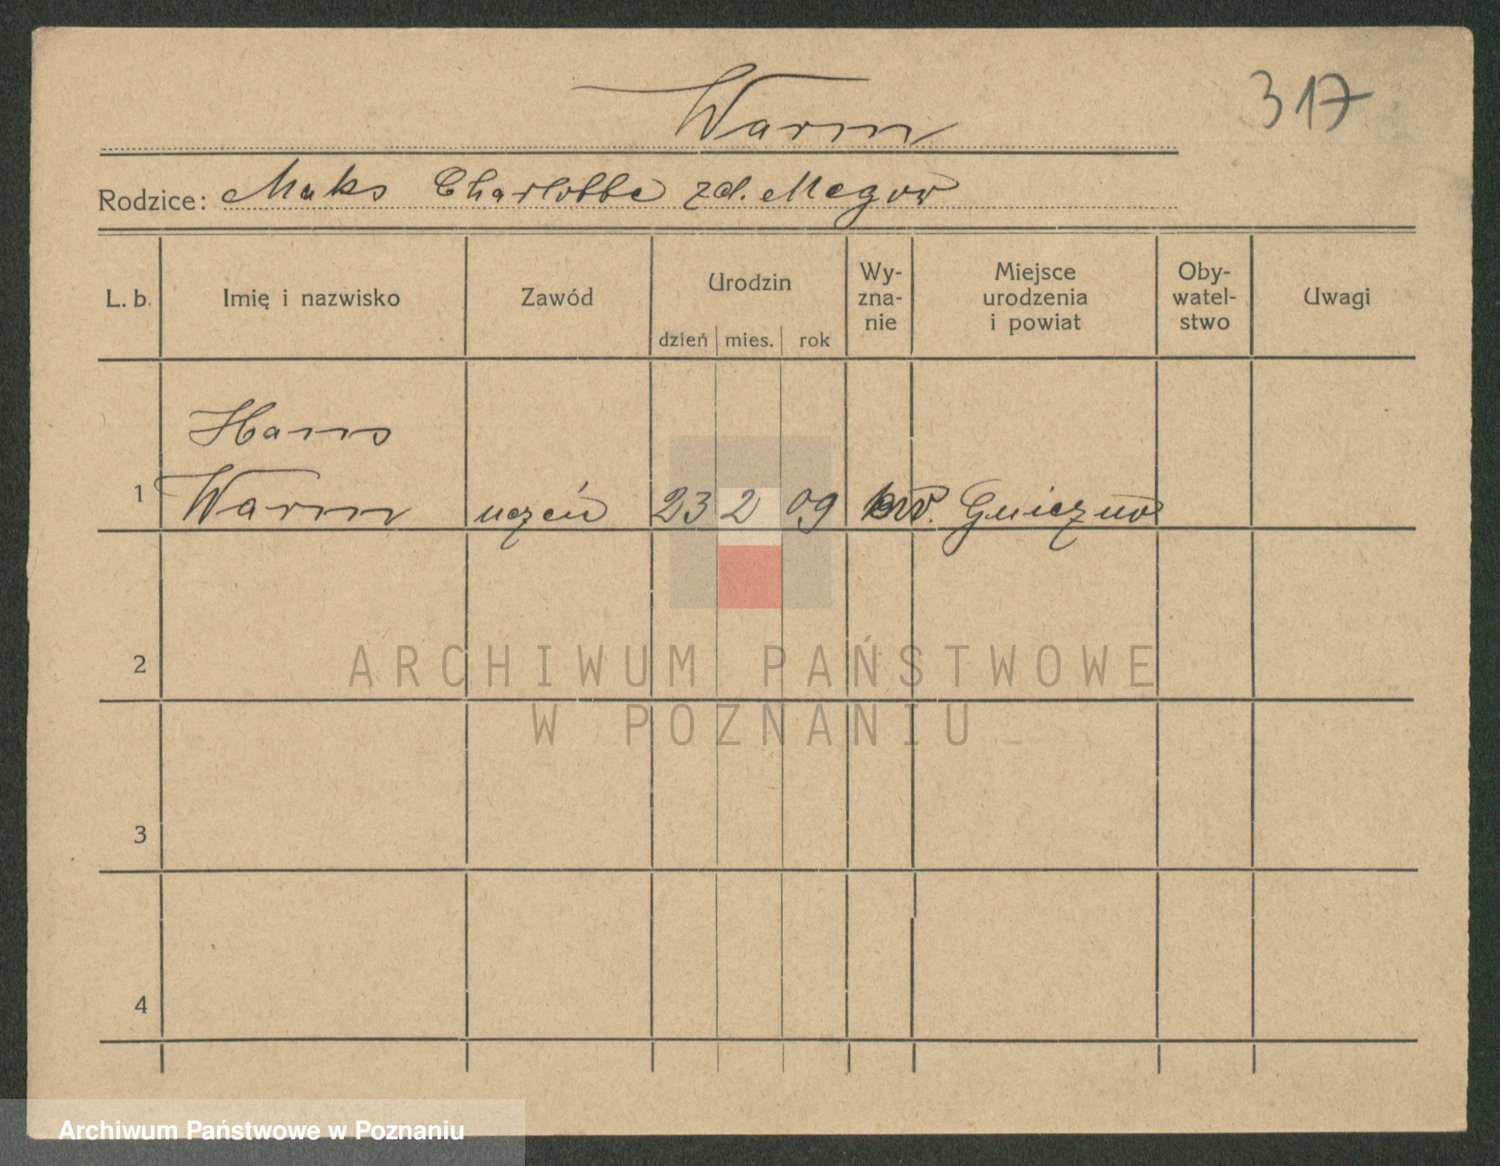 Warm
317
Rodzice: Maks Charlotte zd. Megow
L. b.
Imię i nazwisko
Zawód
Urodzin
dzień
mies.
rok
Wy-
zna-
nie
Miejsce
urodzenia
i powiat
Oby-
watel-
stwo
Uwagi
Hans
1 Warm uczeń 23 2 09 Gniezno
2
ARCHIWUM PAŃSTWOWE
W POZNANIU
3
4
Archiwum Państwowe w Poznaniu